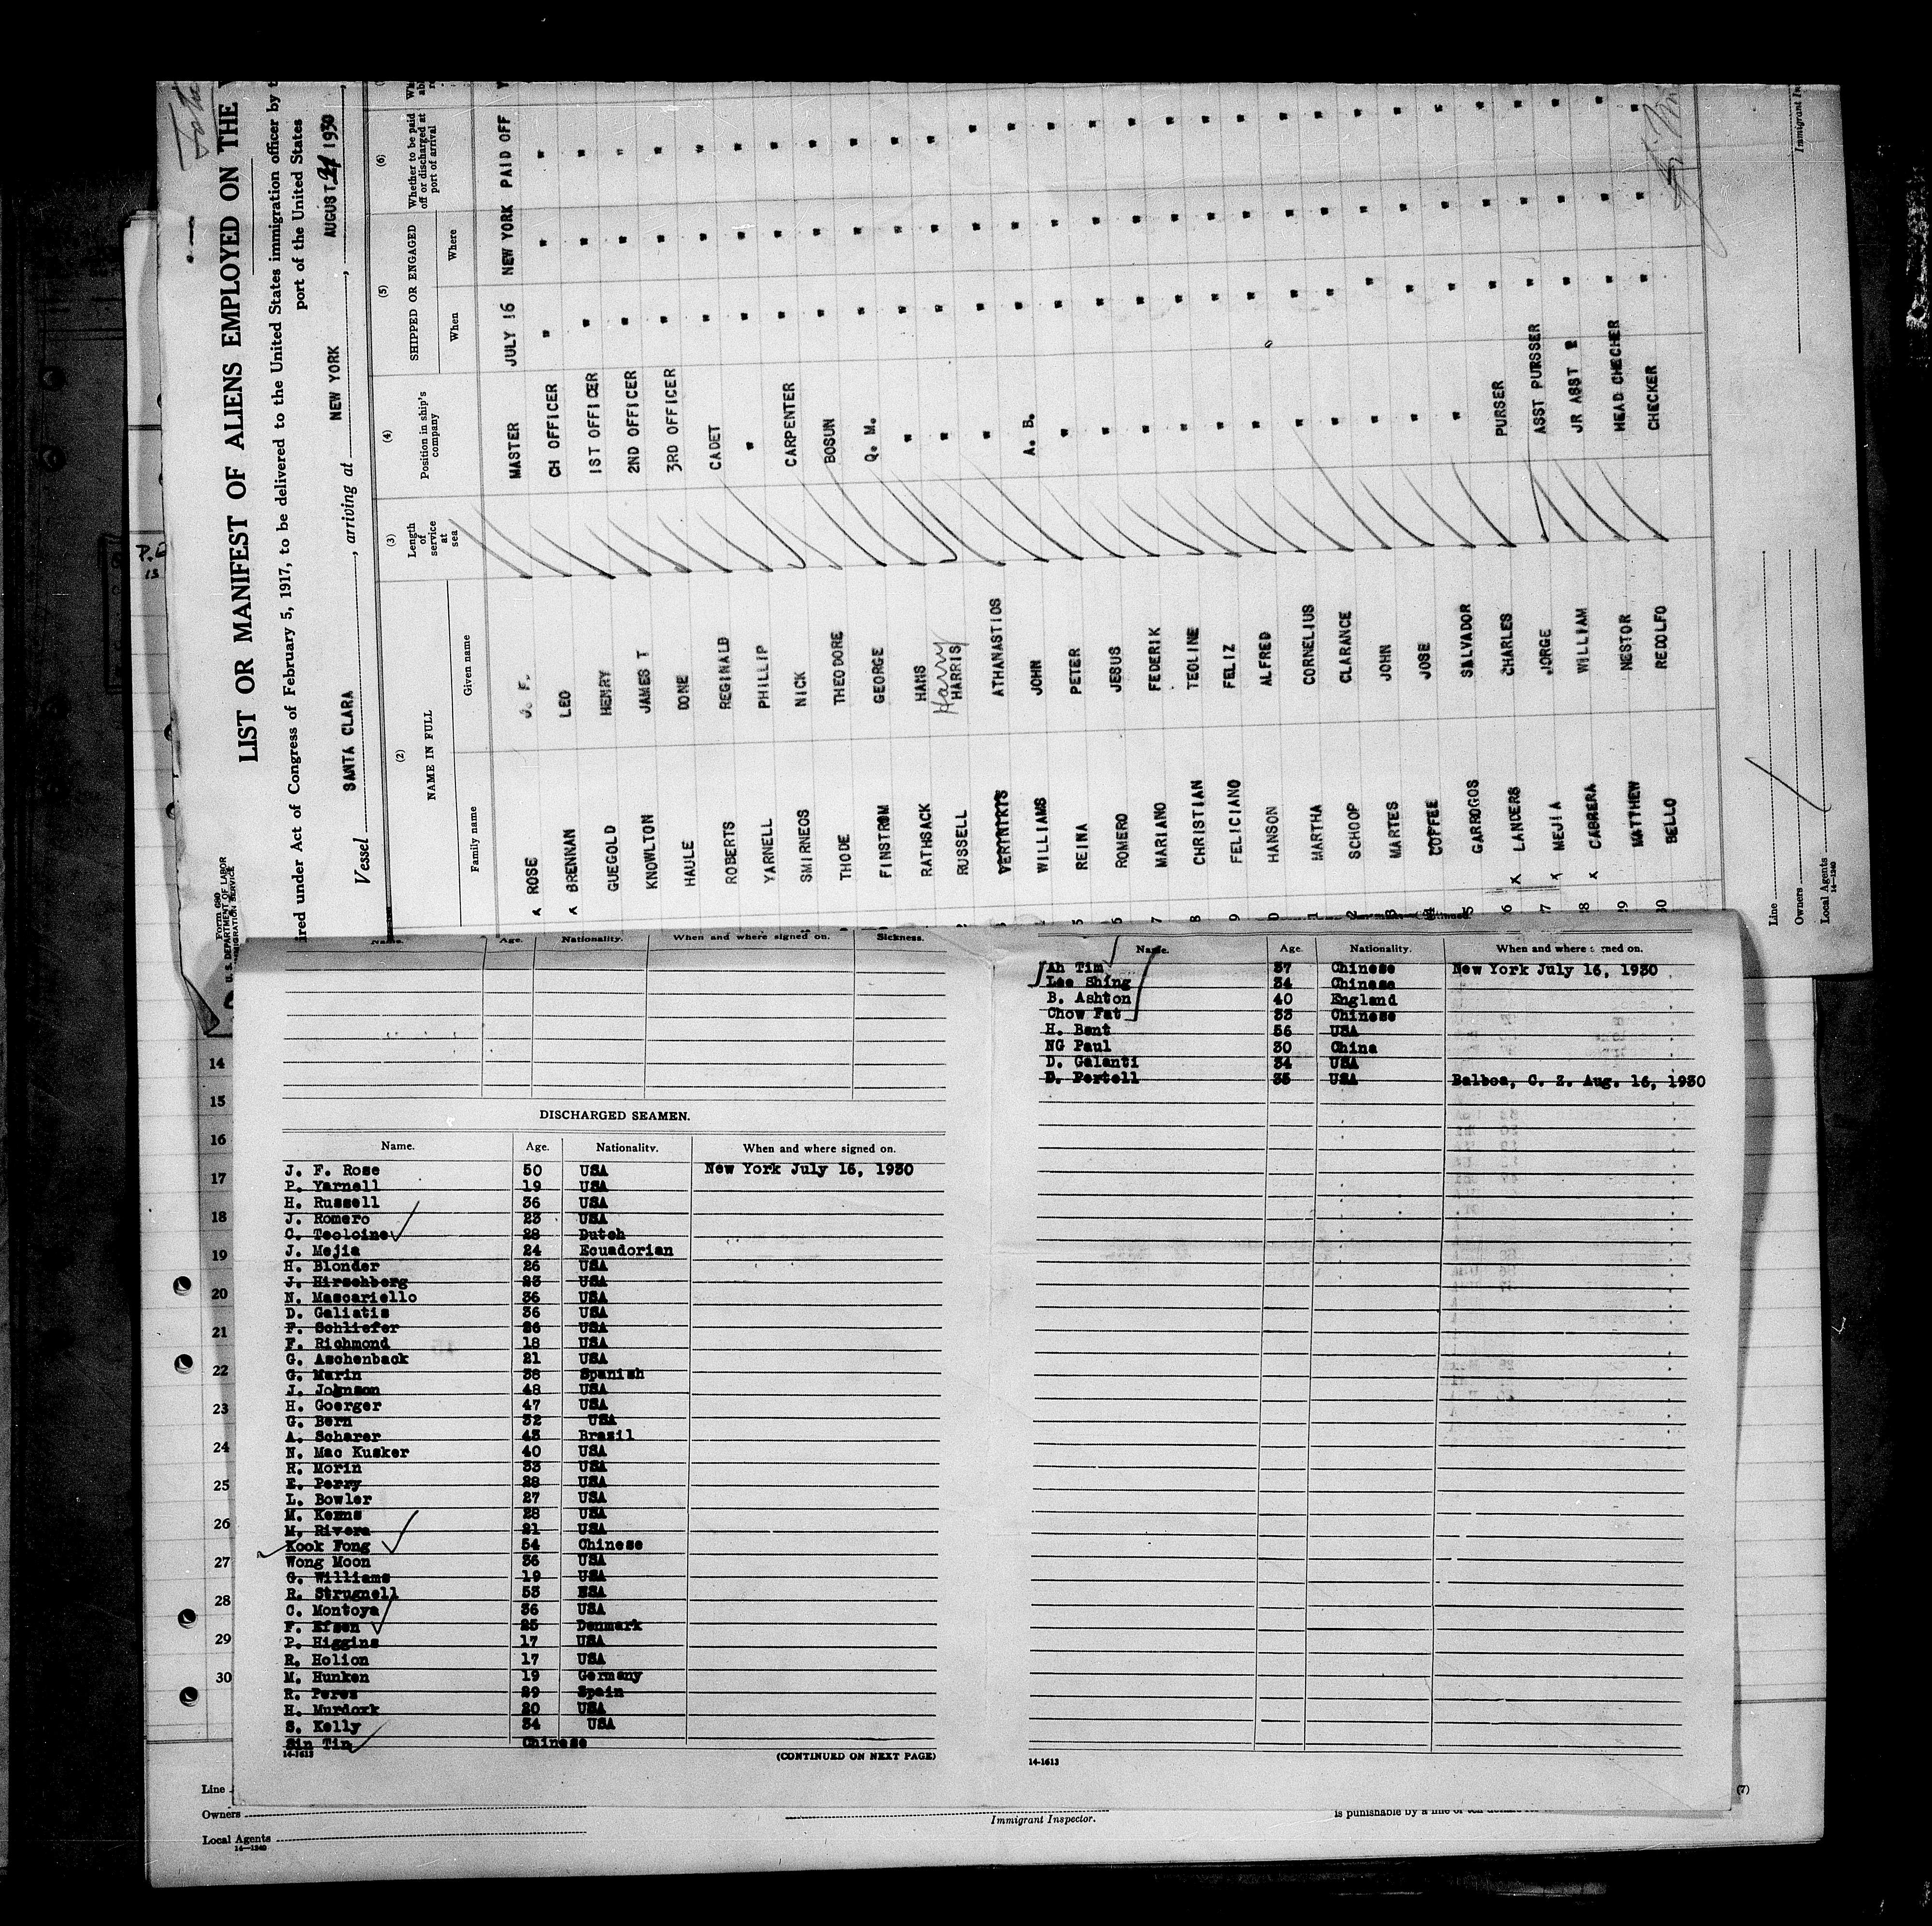 LIST OR MANIFEST OF ALIENS EMPLOYED ON THE
ired under Act of Congress of February 5, 1917, to be delivered to the United States immigration officer by t
port of the United States
Form 689
U. S. DEPARTMENT OF LABOR
IMMIGRATION SERVICE
Vessel SANTA CLARA, arriving at NEW YORK, AUGUST 1930,
(2) (3) (4) (5) (6)
NAME IN FULL Length of service at sea Position in ship's company SHIPPED OR ENGAGED Whether to be paid off or discharged at port of arrival
Family name Given name When Where
x ROSE J. F. MASTER JULY 16 NEW YORK PAID OFF Y
x BRENNAN LEO CH OFFICER " " "
GUEGOLD HENRY 1ST OFFICER " " "
KNOWLTON JAMES T 2ND OFFICER " " "
HAULE DONE 3RD OFFICER " " "
ROBERTS REGINALD CADET " " "
YARNELL PHILLIP " " " "
SMIRNEOS NICK CARPENTER " " "
THODE THEODORE BOSUN " " "
FINSTROM GEORGE Q. M. " " "
RATHSACK HANS " " " "
RUSSELL HARRIS Harry " " " "
ATHANASTIOS " " " "
WILLIAMS JOHN A. B. " " "
5 REINA PETER " " " "
6 ROMERO JESUS " " " "
7 MARIANO FEDERIK " " " "
8 CHRISTIAN TEOLINE " " " "
9 FELICIANO FELIZ " " " "
0 HANSON ALFRED " " " "
1 MARTHA CORNELIUS " " " "
2 SCHOOP CLARANCE " " " "
3 MARTES JOHN " " " "
COFFEE JOSE " " " "
5 GARROGOS SALVADOR " " " "
26 x LANDERS CHARLES PURSER " " "
27 x MEJIA JORGE ASST PURSSER " " "
28 x CABRERA WILLIAM JR ASST P " " "
29 MATTHEW NESTOR HEAD CHECHER " " "
30 BELLO REDOLFO CHECKER " " "
Line
Owners
Local Agents
14-1240
Immigrant In
Name. Age. Nationality. When and where signed on. Sickness.
DISCHARGED SEAMEN.
Name. Age. Nationality. When and where signed on.
J. F. Rose 50 USA New York July 16, 1930
P. Yarnell 19 USA
H. Russell 36 USA
J. Romero 23 USA
C. Teoloine 28 Dutch
J. Mejia 24 Ecuadorian
H. Blonder 26 USA
J. Hirschberg 23 USA
N. Mascariello 36 USA
D. Galiatis 36 USA
F. Schliefer 26 USA
F. Richmond 18 USA
G. Aschenback 21 USA
G. Marin 38 Spanish
J. Johnson 48 USA
H. Goerger 47 USA
G. Bern 32 USA
A. Scharer 43 Brazil
N. Mac Kusker 40 USA
R. Morin 33 USA
E. Perry 28 USA
L. Bowler 27 USA
M. Kerns 28 USA
M. Rivera 21 USA
Kook Fong 54 Chinese
Wong Moon 36 USA
G. Williams 19 USA
R. Strugnell 53 USA
C. Montoya 36 USA
F. Efsen 25 Denmark
P. Higgins 17 USA
R. Holion 17 USA
M. Hunken 19 Germany
R. Peres 29 Spain
H. Murdoxk 20 USA
S. Kelly 34 USA
Sin Tin Chinese
14-1613
(CONTINUED ON NEXT PAGE)
Name. Age. Nationality. When and where signed on.
Ah Tim 37 Chinese New York July 16, 1930
Lee Shing 34 Chinese
B. Ashton 40 England
Chow Fat 33 Chinese
H. Bant 56 USA
NG Paul 30 China
D. Galanti 34 USA
D. Pertell 35 USA Balboa, C. Z. Aug. 16, 1930
14-1613
14
15
16
17
18
19
20
21
22
23
24
25
26
27
28
29
30
Line
Owners
Local Agents
14-1240
Immigrant Inspector.
is punishable by a fine of
(7)